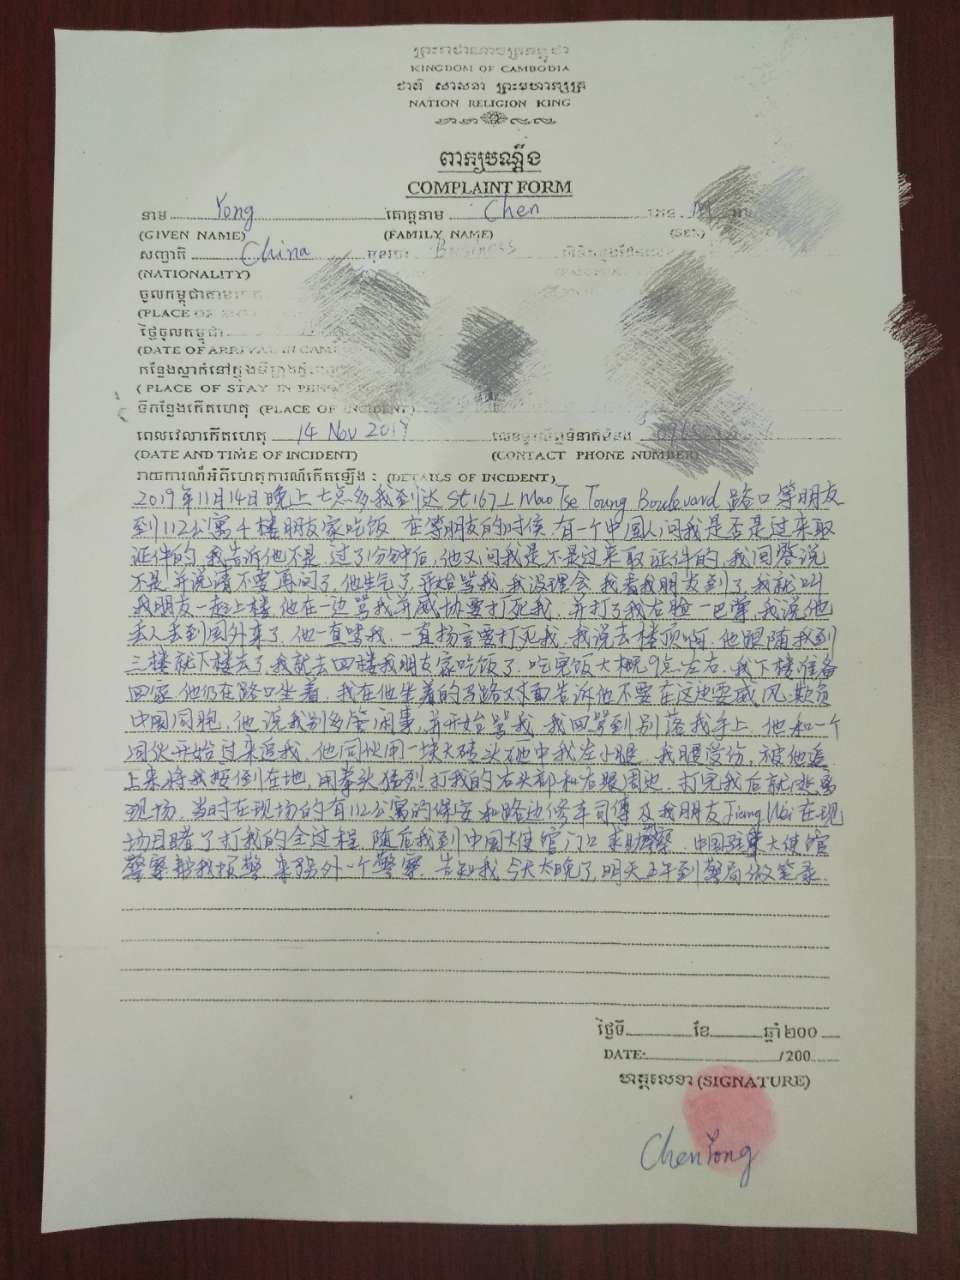 ព្រះរាជាណាចក្រកម្ពុជា
KINGDOM OF CAMBODIA
ជាតិ សាសនា ព្រះមហាក្សត្រ
NATION RELIGION KING
ពាក្យបណ្តឹង
COMPLAINT FORM
នាម Yong គោត្តនាម Chen ភេទ M
(GIVEN NAME) (FAMILY NAME) (SEX)
សញ្ជាតិ China មុខរបរ Business
(NATIONALITY)
ចូលកម្ពុជាតាម
(PLACE OF
ថ្ងៃចូលកម្ពុជា
(DATE OF ARRIVAL IN CAM
កន្លែងស្នាក់នៅក្នុងទីក្រុង
(PLACE OF STAY IN PHN
ទីកន្លែងកើតហេតុ (PLACE OF INCIDENT)
ពេលវេលាកើតហេតុ 14 Nov 2019 លេខទូរស័ព្ទទំនាក់ទំនង
(DATE AND TIME OF INCIDENT) (CONTACT PHONE NUMBER)
រាយការណ៍អំពីហេតុការណ៍កើតឡើង : (DETAILS OF INCIDENT)
2019年11月14日晚上七点多我到达 St 167上 Mao Tse Toung Boulevard 路口等朋友
到112公寓4楼朋友家吃饭 在等朋友的时侯.有一个中国人问我是否是过来取
证件的,我告诉他不是.过了1分钟后,他又问我是不是过来取证件的,我回答说
不是并说请不要再问了,他生气了,开始骂我,我没理会,我看我朋友到了,我就叫
我朋友一起上楼,他在一边骂我并威协要打死我,并打了我左脸一巴掌,我说他
丢人丢到国外来了,他一直骂我,一直扬言要打死我,我说去楼顶啊,他跟随我到
三楼就下楼去了,我就去四楼我朋友家吃饭了.吃完饭大概9点左右,我下楼准备
回家,他仍在路口坐着,我在他坐着的马路对面告诉他不要在这边耍威风欺负
中国同胞,他说我别多管闲事,并开始骂我,我回骂到别落我手上,他和一个
同伙开始过来追我,他同伙用一块大砖头砸中我左小腿,我腿受伤,被他追
上来将我按倒在地,用拳头猛烈打我的右头部和右眼周边,打完我后就逃离
现场,当时在现场的有112公寓的保安和路边修车司傅及我朋友Jiang Wei在现
场目睹了打我的全过程,随后我到中国大使馆门口求助,中国驻柬大使馆
警察帮我报警 来另外一个警察,告知我今天太晚了,明天正午到警局做笔录.
ថ្ងៃទី ខែ ឆ្នាំ២០០
DATE: /200
ហត្ថលេខា (SIGNATURE)
Chen Yong